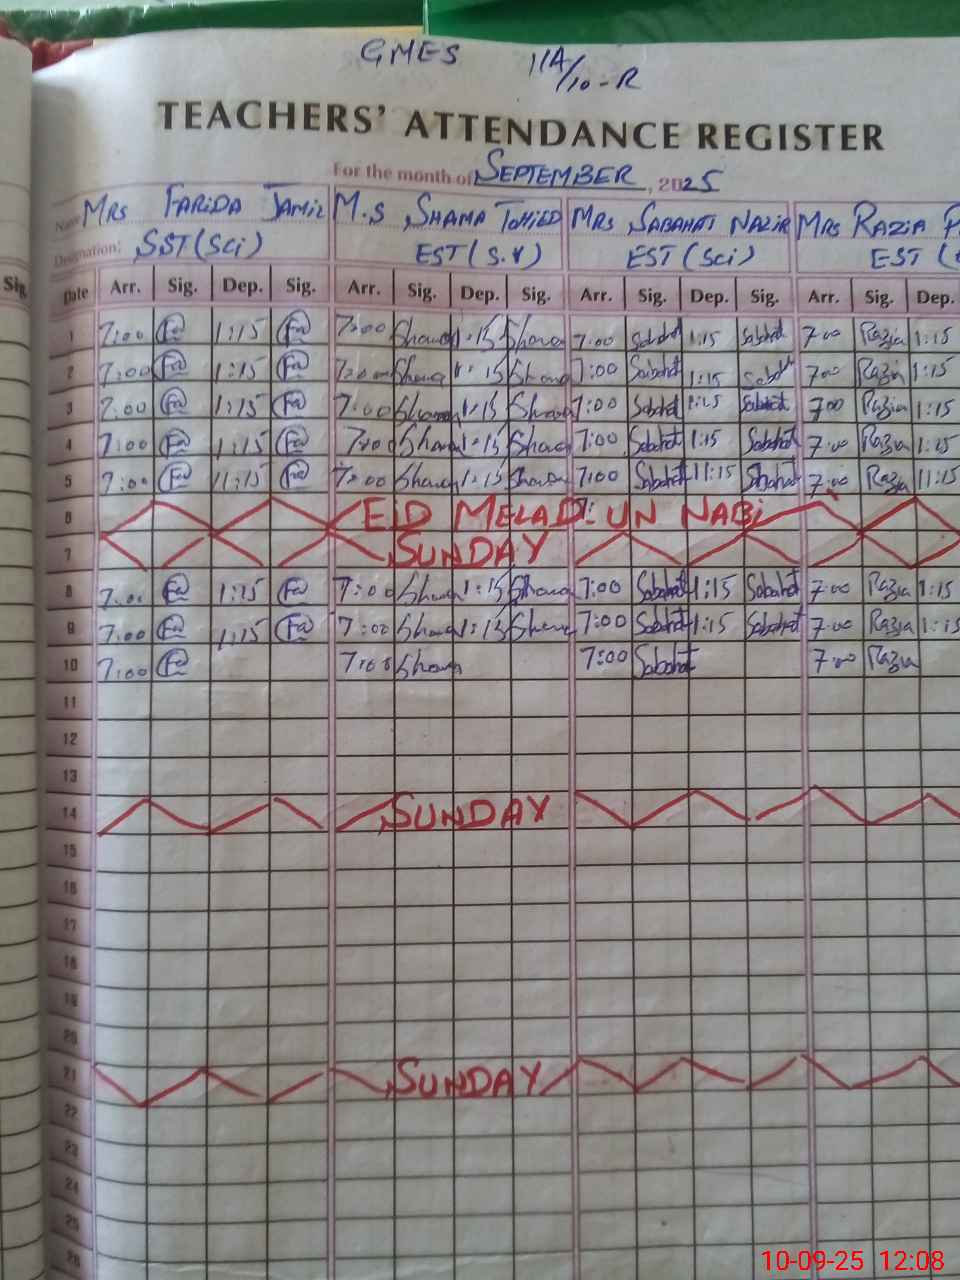 GMES 11A/10-R
TEACHERS' ATTENDANCE REGISTER
For the month of SEPTEMBER, 2025
Name MRS FARIDA JAMIL M.S SHAMA TOHEED MRS SABAHAT NAZIR MRS RAZIA
Designation: SST (Sci) EST (S.V) EST (Sci) EST
Sig.
Date Arr. Sig. Dep. Sig. Arr. Sig. Dep. Sig. Arr. Sig. Dep. Sig. Arr. Sig. Dep.
1 7:00 Fa 1:15 Fa 7:00 Shama 1:15 Shama 7:00 Sabahat 1:15 Sabahat 7:00 Razia 1:15
2 7:00 Fa 1:15 Fa 7:00 Shama 1:15 Shama 7:00 Sabahat 1:15 Sabahat 7:00 Razia 1:15
3 7:00 Fa 1:15 Fa 7:00 Shama 1:15 Shama 7:00 Sabahat 1:15 Sabahat 7:00 Razia 1:15
4 7:00 Fa 1:15 Fa 7:00 Shama 1:15 Shama 7:00 Sabahat 1:15 Sabahat 7:00 Razia 1:15
5 7:00 Fa 11:15 Fa 7:00 Shama 1:15 Shama 7:00 Sabahat 11:15 Sabahat 7:00 Razia 11:15
6 EID MELAD. UN NABI
7 SUNDAY
8 7:00 Fa 1:15 Fa 7:00 Shama 1:15 Shama 7:00 Sabahat 1:15 Sabahat 7:00 Razia 1:15
9 7:00 Fa 1:15 Fa 7:00 Shama 1:15 Shama 7:00 Sabahat 1:15 Sabahat 7:00 Razia 1:15
10 7:00 Fa 7:00 Shama 7:00 Sabahat 7:00 Razia
11
12
13
14 SUNDAY
15
16
17
18
19
20
21 SUNDAY
22
23
24
25
26
10-09-25 12:08